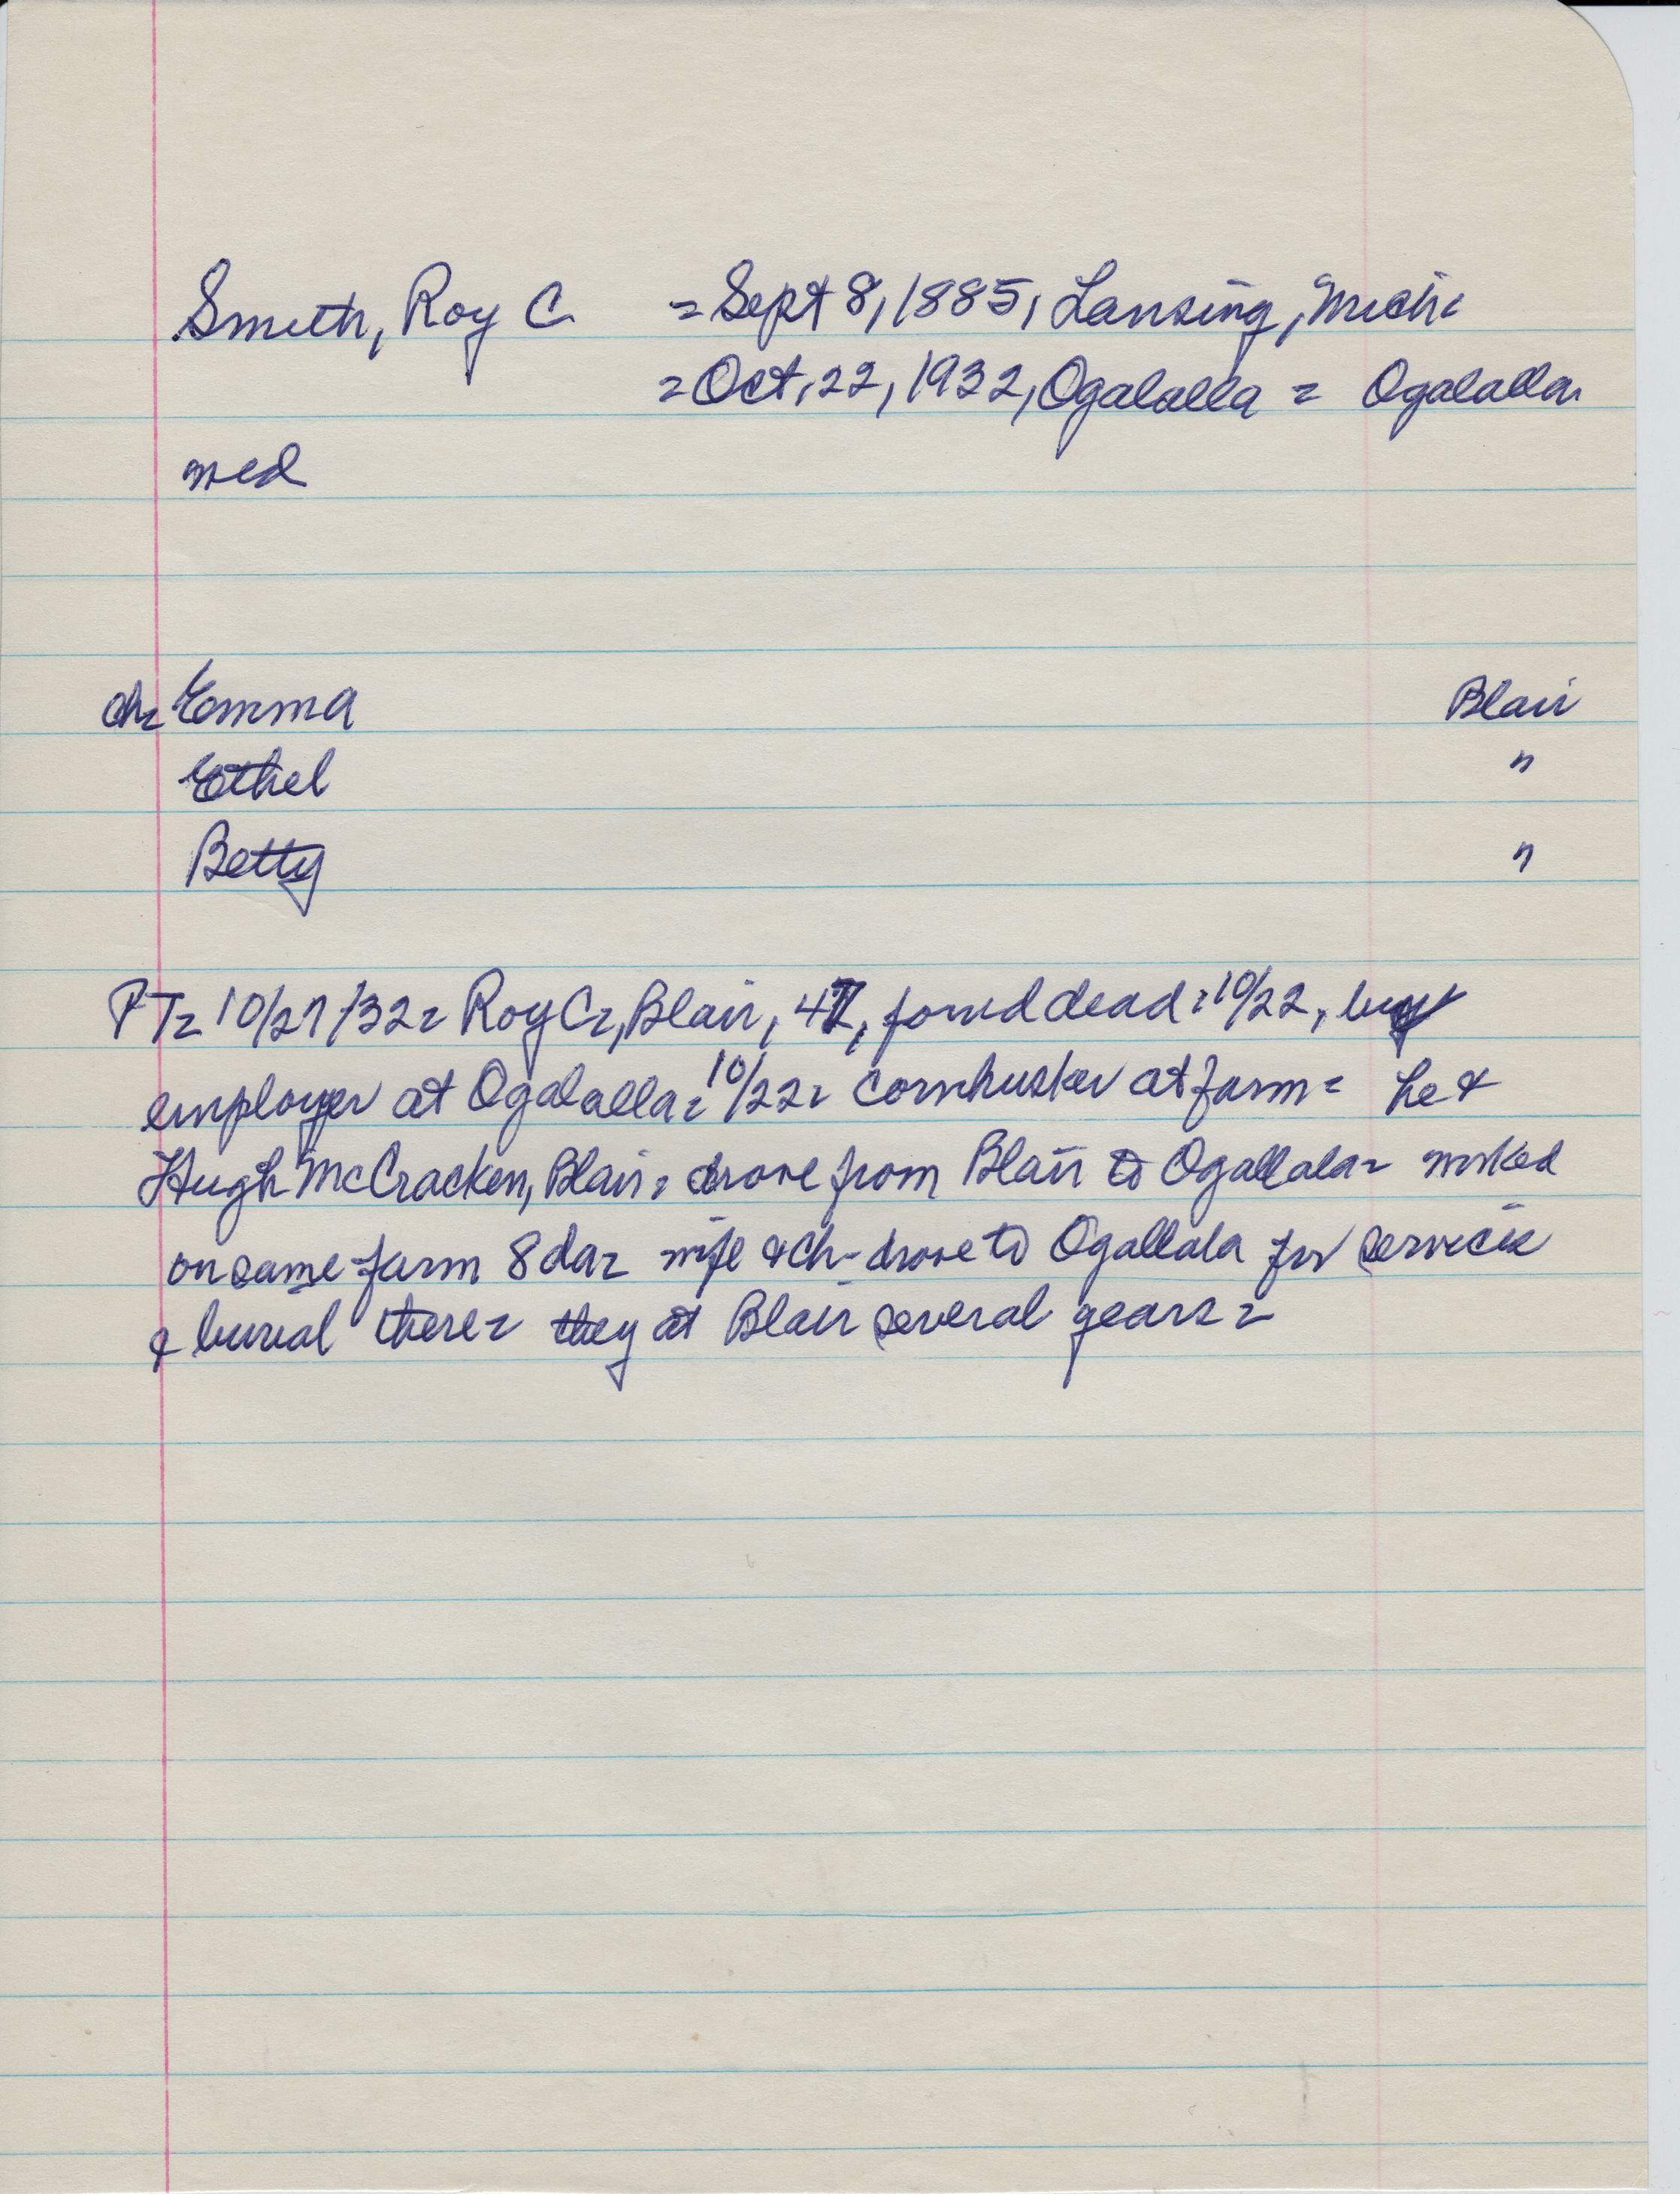 Smith, Roy C. = Sept 8, 1885, Lansing, Mich.
= Oct. 22, 1932, Ogalalla = Ogalalla
med
ch= Emma Blair
Ethel "
Betty "
PT= 10/27/32= Roy C=, Blair, 47, found dead= 10/22, by
employer at Ogalalla= 10/22= cornhusker at farm= he &
Hugh McCracken, Blair= drove from Blair to Ogallala= worked
on same farm 8 da= wife & ch- drove to Ogallala for services
& burial there= they at Blair several years=